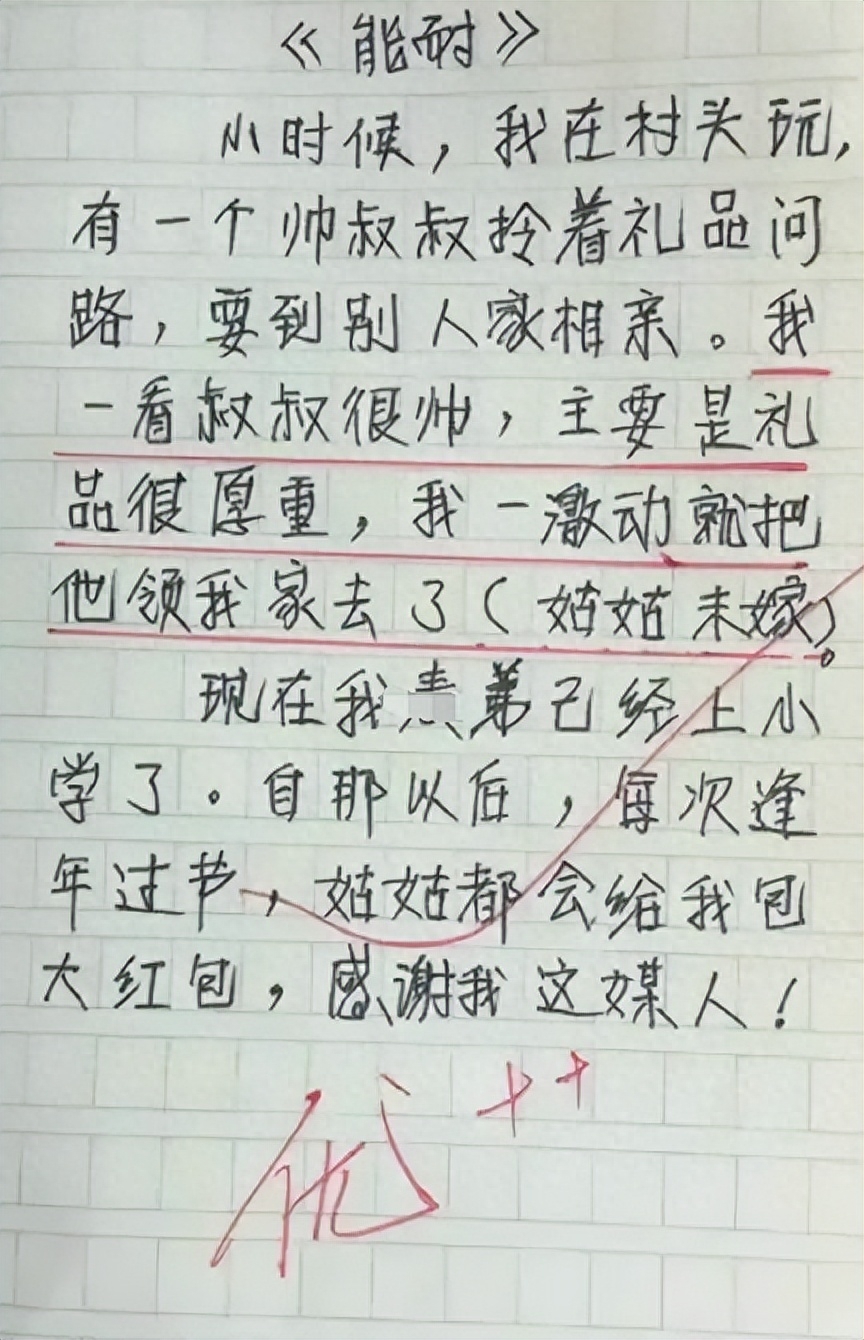 《能耐》
小时候，我在村头玩，
有一个帅叔叔拎着礼品问
路，要到别人家相亲。我
一看叔叔很帅，主要是礼
品很厚重，我一激动就把
他领我家去了（姑姑未嫁）。
现在我表弟已经上小
学了。自那以后，每次逢
年过节，姑姑都会给我包
大红包，感谢我这媒人！
优++